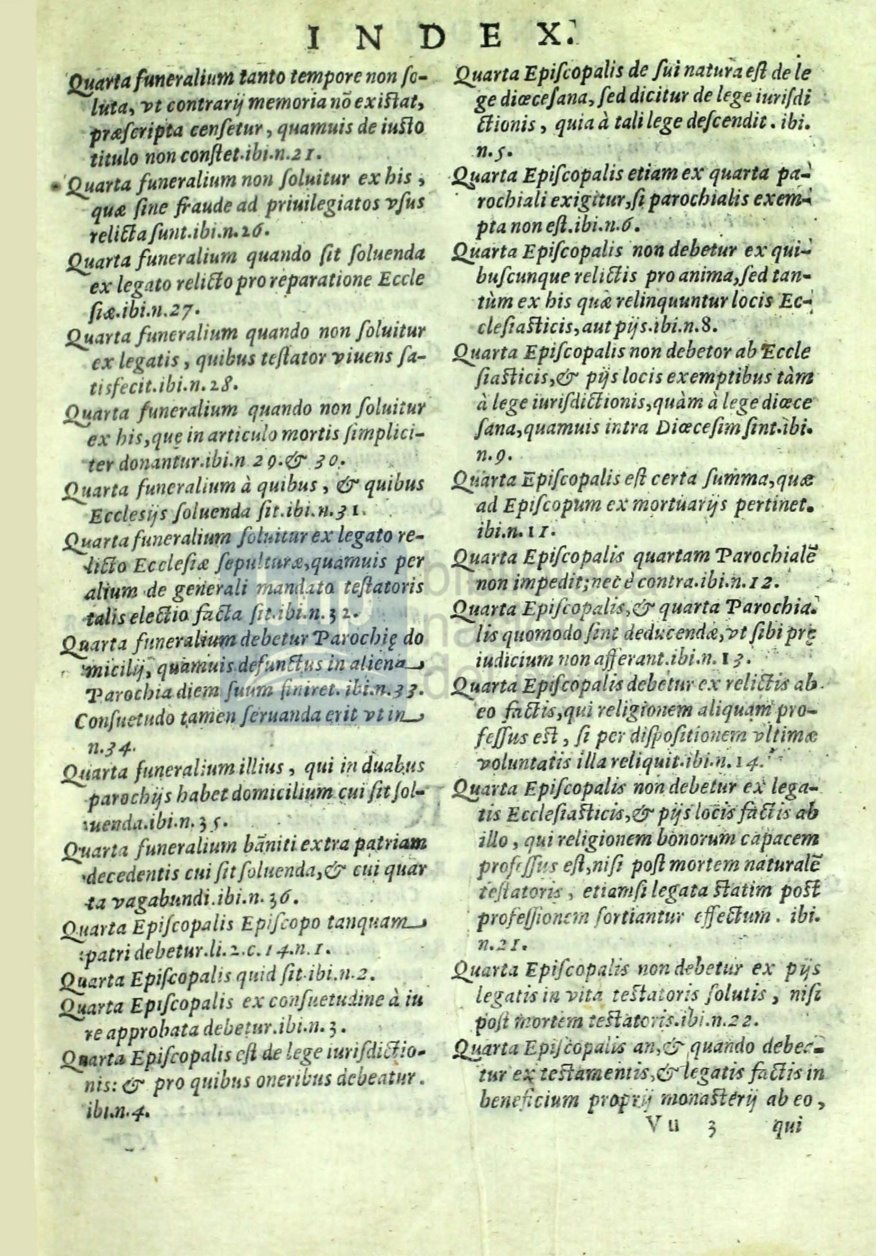 INDEX.
Quarta funeralium tanto tempore non ſo-
luta, vt contrarij memoria nõ exiſtat,
præſcripta cenſetur, quamuis de iuſto
titulo non conſtet.ibi.n.21.
Quarta funeralium non ſoluitur ex his,
quæ ſine fraude ad priuilegiatos vſus
relicta ſunt.ibi.n.26.
Quarta funeralium quando ſit ſoluenda
ex legato relicto pro reparatione Eccle
ſiæ.ibi.n.27.
Quarta funeralium quando non ſoluitur
ex legatis, quibus teſtator viuens ſa-
tisfecit.ibi.n.28.
Quarta funeralium quando non ſoluitur
ex his,quę in articulo mortis ſimplici-
ter donantur.ibi.n 29.& 30.
Quarta funeralium à quibus, & quibus
Eccleſijs ſoluenda ſit.ibi.n.31.
Quarta funeralium ſoluitur ex legato re-
licto Eccleſiæ ſepulturæ,quamuis per
alium de generali mandato teſtatoris
talis electio facta ſit.ibi.n.32.
Quarta funeralium debetur Parochię do
micilij, quamuis defunctus in aliena
Parochia diem ſuum finiret. ibi.n.33.
Conſuetudo tamen ſeruanda erit vt in
n.34.
Quarta funeralium illius, qui in duabus
parochijs habet domicilium cui ſit ſol-
uenda.ibi.n.35.
Quarta funeralium bãniti extra patriam
decedentis cui ſit ſoluenda,& cui quar
ta vagabundi.ibi.n.36.
Quarta Epiſcopalis Epiſcopo tanquam
patri debetur.li.2.c.14.n.1.
Quarta Epiſcopalis quid ſit.ibi.n.2.
Quarta Epiſcopalis ex conſuetudine à iu
re approbata debetur.ibi.n.3.
Quarta Epiſcopalis eſt de lege iuriſdictio-
nis: & pro quibus oneribus debeatur.
ibi.n.4.
Quarta Epiſcopalis de ſui natura eſt de le
ge diœceſana, ſed dicitur de lege iuriſdi
ctionis, quia à tali lege deſcendit. ibi.
n.5.
Quarta Epiſcopalis etiam ex quarta pa-
rochiali exigitur,ſi parochialis exem-
pta non eſt.ibi.n.6.
Quarta Epiſcopalis non debetur ex qui-
buſcunque relictis pro anima,ſed tan-
tùm ex his quæ relinquuntur locis Ec-
cleſiaſticis,aut pijs.ibi.n.8.
Quarta Epiſcopalis non debetor ab Eccle
ſiaſticis,& pijs locis exemptibus tàm
à lege iuriſdictionis,quàm à lege diœce
ſana,quamuis intra Diœceſim ſint.ibi.
n.9.
Quarta Epiſcopalis eſt certa ſumma,quæ
ad Epiſcopum ex mortuarijs pertinet.
ibi.n.11.
Quarta Epiſcopalis quartam Parochialẽ
non impedit;nec è contra.ibi.n.12.
Quarta Epiſcopalis,& quarta Parochia
lis quomodo ſint deducendæ,vt ſibi pre
iudicium non afferant.ibi.n.13.
Quarta Epiſcopalis debetur ex relictis ab
eo factis,qui religionem aliquam pro-
feſſus eſt, ſi per diſpoſitionem vltimæ
voluntatis illa reliquit.ibi.n.14.
Quarta Epiſcopalis non debetur ex lega-
tis Eccleſiaſticis,& pijs locis factis ab
illo, qui religionem bonorum capacem
profeſſus eſt,niſi poſt mortem naturalẽ
teſtatoris, etiamſi legata ſtatim poſt
profeſſionem ſortiantur effectum. ibi.
n.21.
Quarta Epiſcopalis non debetur ex pijs
legatis in vita teſtatoris ſolutis, niſi
poſt mortem teſtatoris.ibi.n.22.
Quarta Epiſcopalis an,& quando debec-
tur ex teſtamentis,& legatis factis in
beneficium proprij monaſterij ab eo,
Vu 3 qui